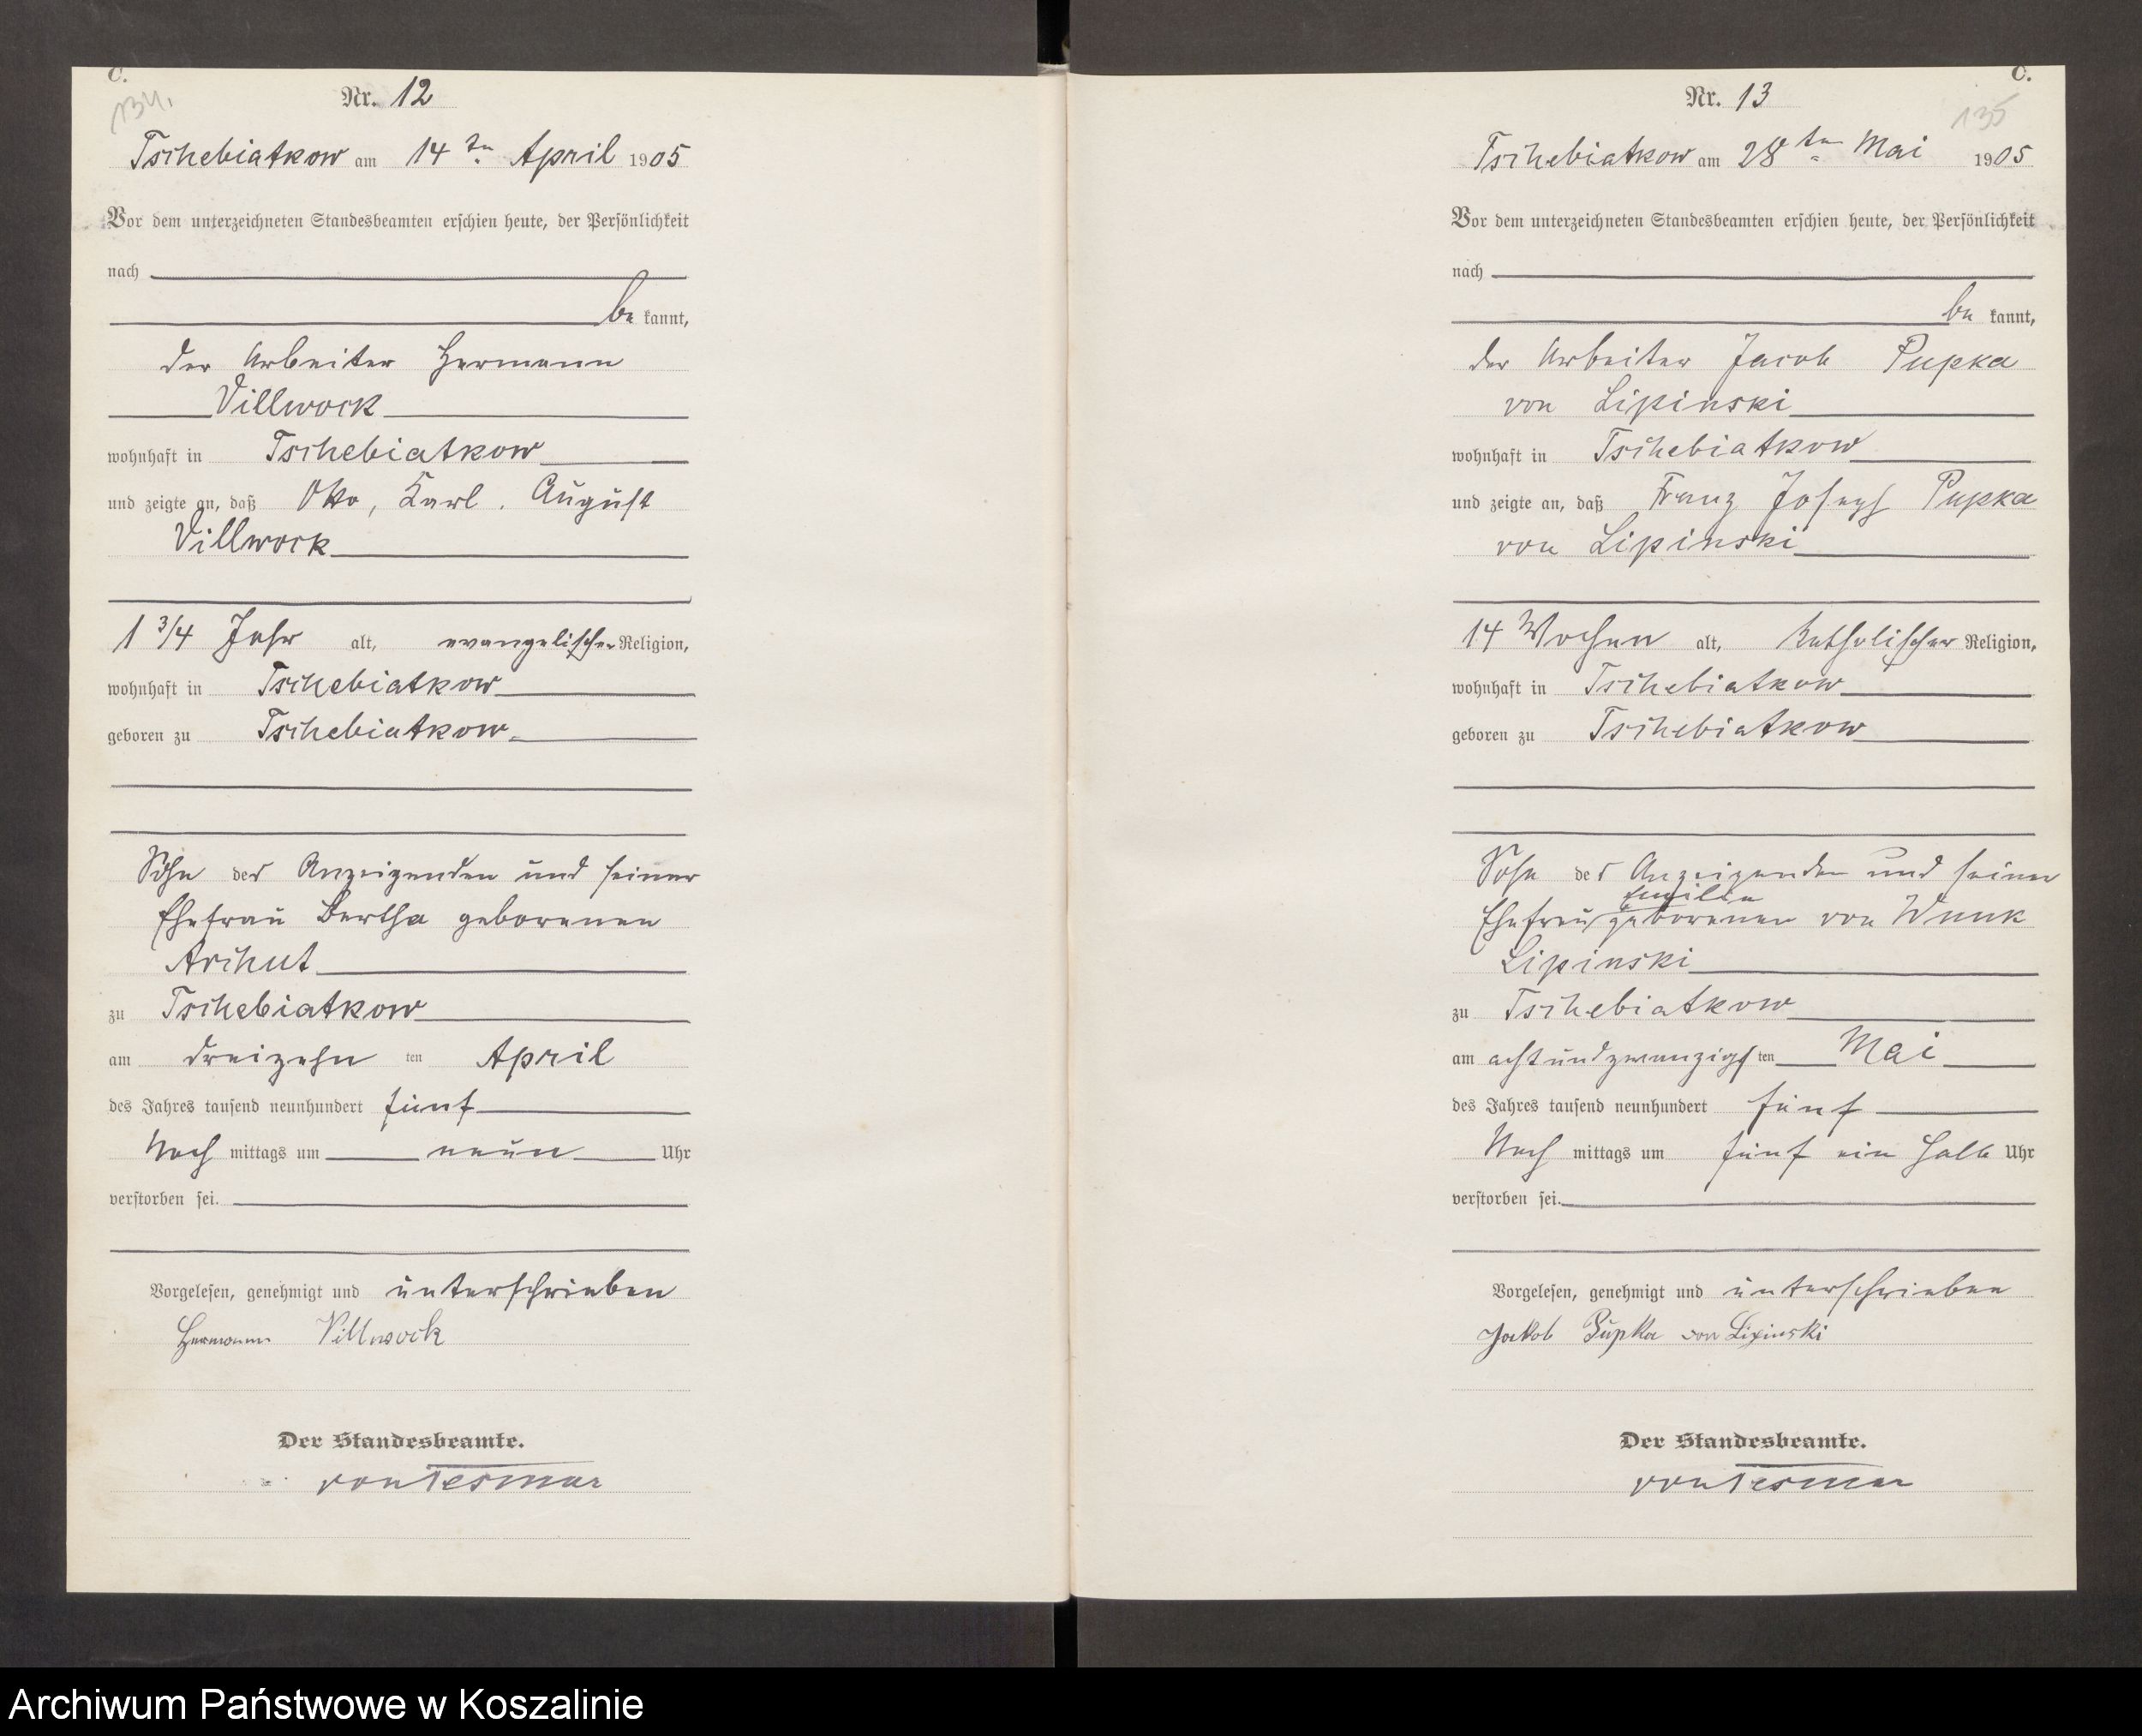 C.
134.
Nr. 12
Tschebiatkow am 14ten April 1905
Vor dem unterzeichneten Standesbeamten erschien heute, der Persönlichkeit
nach
be kannt,
der Arbeiter Hermann
Villwock
wohnhaft in Tschebiatkow
und zeigte an, daß Otto, Karl, August
Villwock
1 3/4 Jahr alt, evangelischer Religion,
wohnhaft in Tschebiatkow
geboren zu Tschebiatkow
Sohn des Anzeigenden und seiner
Ehefrau Bertha geborenen
Aschut
zu Tschebiatkow
am dreizehn ten April
des Jahres tausend neunhundert fünf
Nach mittags um neun Uhr
verstorben sei.
Vorgelesen, genehmigt und unterschrieben
Hermann Villwock
Der Standesbeamte.
von Tesmar
C.
135
Nr. 13
Tschebiatkow am 28ten Mai 1905
Vor dem unterzeichneten Standesbeamten erschien heute, der Persönlichkeit
nach
be kannt,
der Arbeiter Jacob Pupka
von Lipinski
wohnhaft in Tschebiatkow
und zeigte an, daß Franz Joseph Pupka
von Lipinski
14 Wochen alt, katholischer Religion,
wohnhaft in Tschebiatkow
geboren zu Tschebiatkow
Sohn des Anzeigenden und seiner
Ehefrau geborenen von Wnuk
Lipinski
zu Tschebiatkow
am achtundzwanzigs ten Mai
des Jahres tausend neunhundert fünf
Nach mittags um fünf ein halb Uhr
verstorben sei.
Vorgelesen, genehmigt und unterschrieben
Jakob Pupka von Lipinski
Der Standesbeamte.
von Tesmar
Archiwum Państwowe w Koszalinie